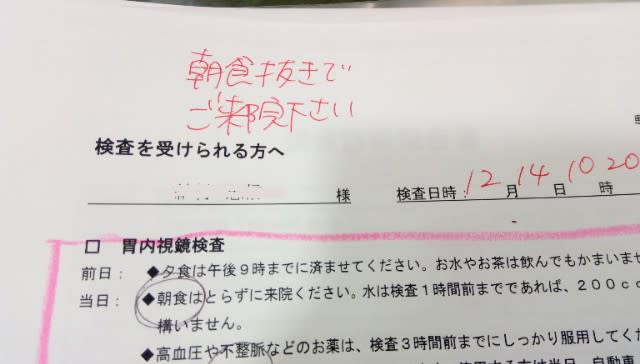 朝食抜きで
ご来院下さい
検査を受けられる方へ
様 検査日時：12月14日10時20
□ 胃内視鏡検査
前日： ◆夕食は午後９時までに済ませてください。お水やお茶は飲んでもかまいませ
当日： ◆朝食はとらずに来院ください。水は検査１時間前までであれば、２００cc
構いません。
◆高血圧や不整脈などのお薬は、検査３時間前までにしっかり服用してくだ